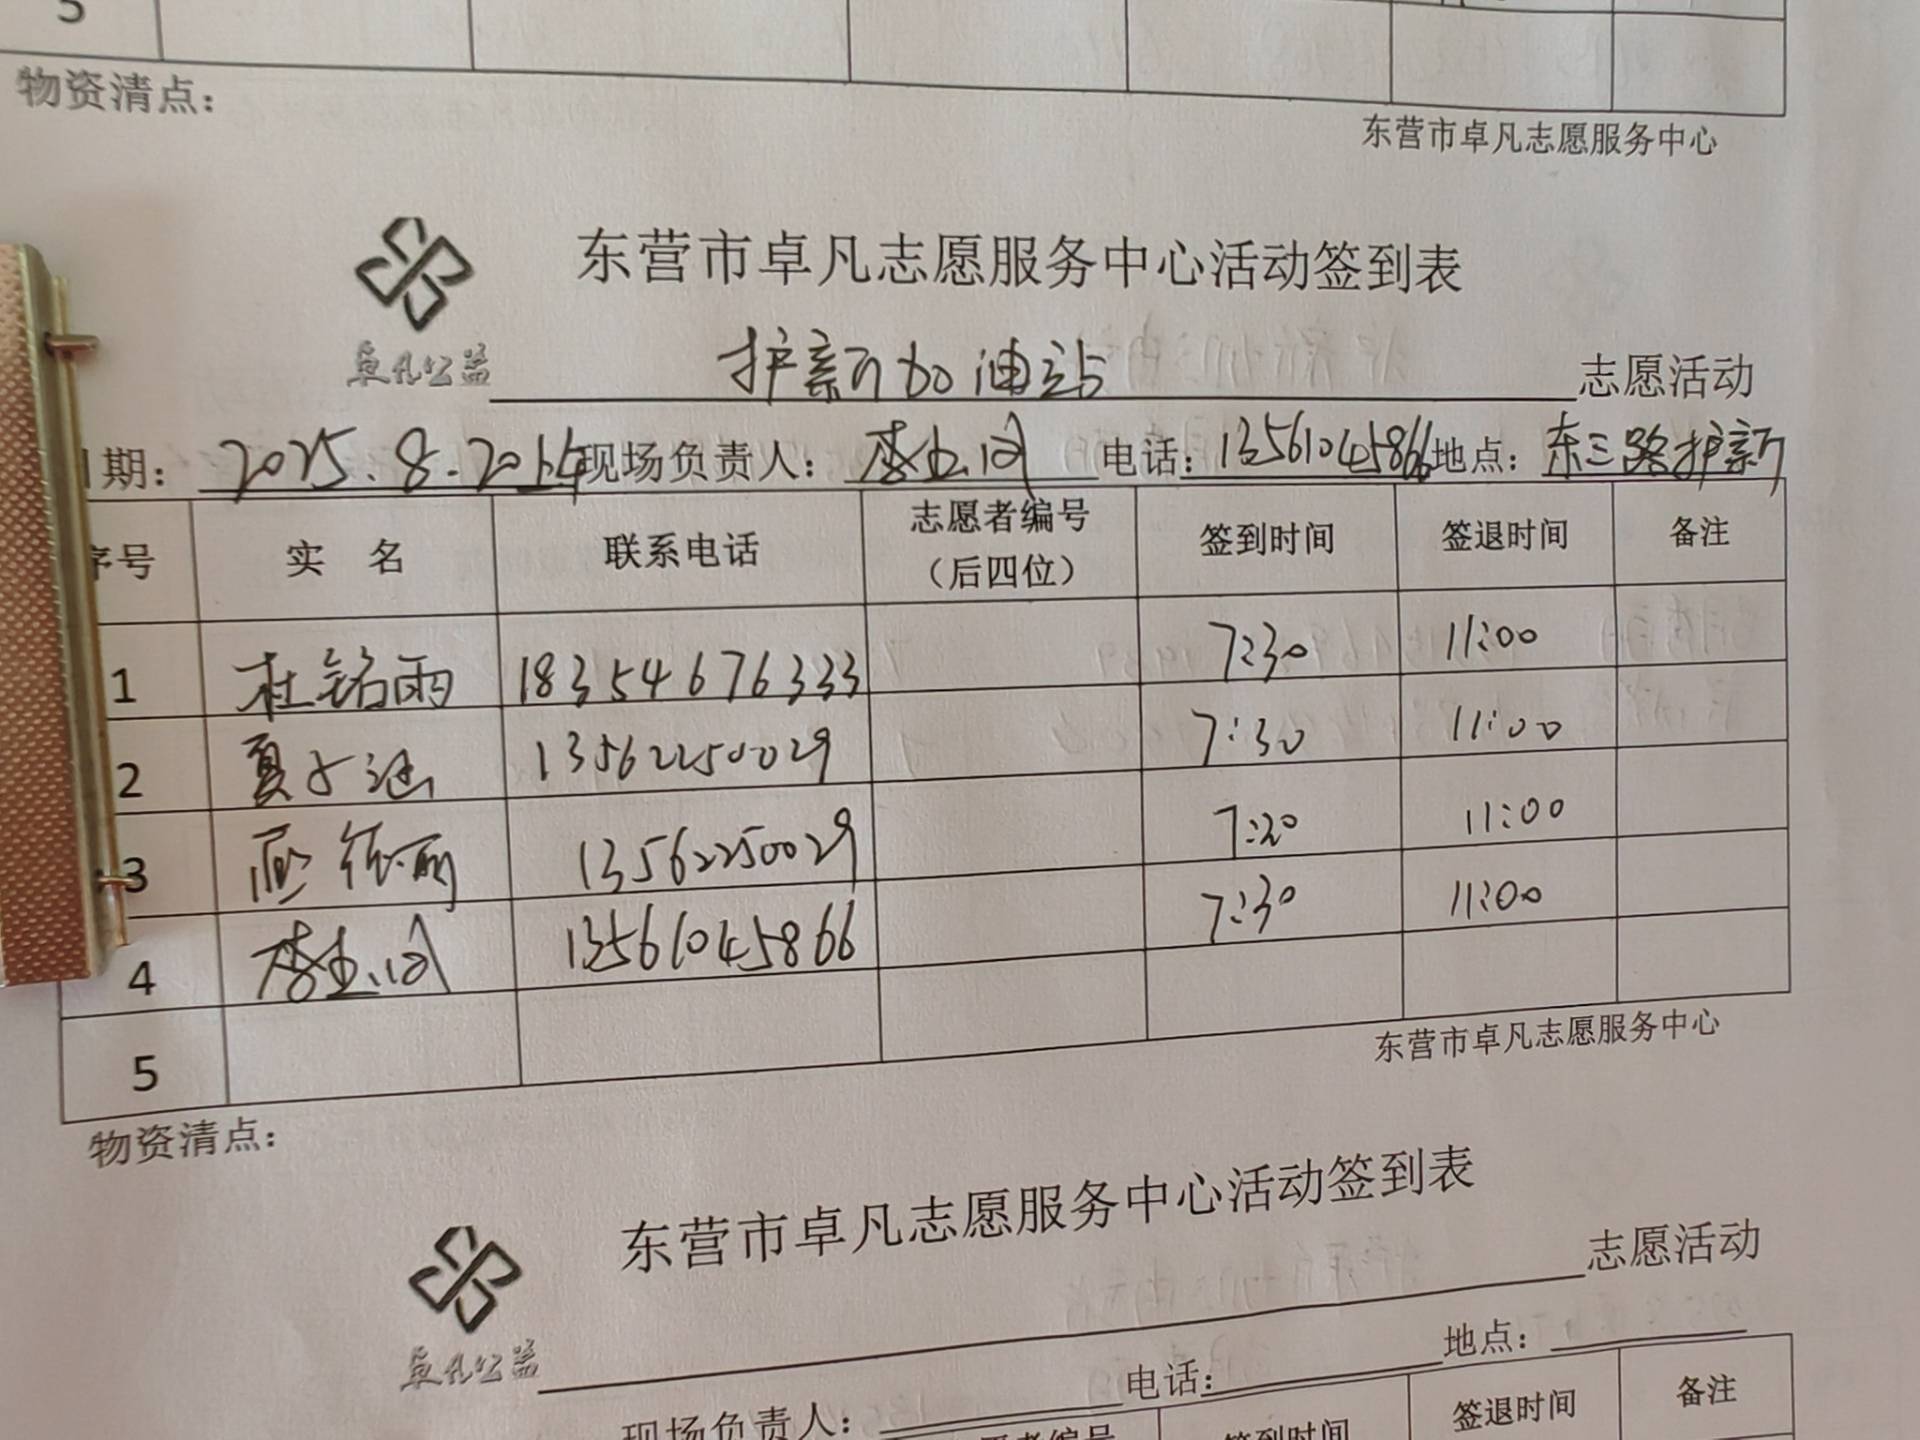 5
物资清点：
东营市卓凡志愿服务中心
东营市卓凡志愿服务中心活动签到表
卓凡公益
护新加油站 志愿活动
日期： 2025.8.20 现场负责人： 电话：13561045866 地点：东三路护新
序号 实 名 联系电话 志愿者编号（后四位） 签到时间 签退时间 备注
1 杜铭雨 18354676333 7:30 11:00
2 夏子涵 13562250029 7:30 11:00
3 13562250029 7:30 11:00
4 13561045866 7:30 11:00
5
东营市卓凡志愿服务中心
物资清点：
东营市卓凡志愿服务中心活动签到表
卓凡公益
志愿活动
现场负责人： 电话： 地点：
签到时间 签退时间 备注